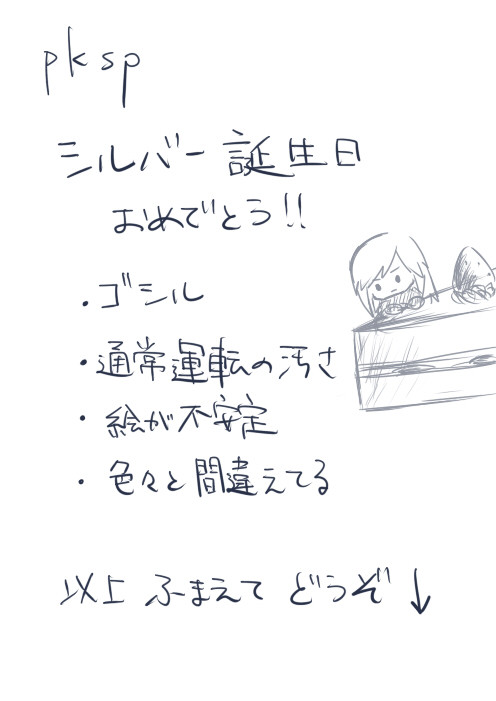 pksp
シルバー誕生日
おめでとう!!
・ゴシル
・通常運転の汚さ
・絵が不安定
・色々と間違えてる
以上 ふまえて どうぞ↓